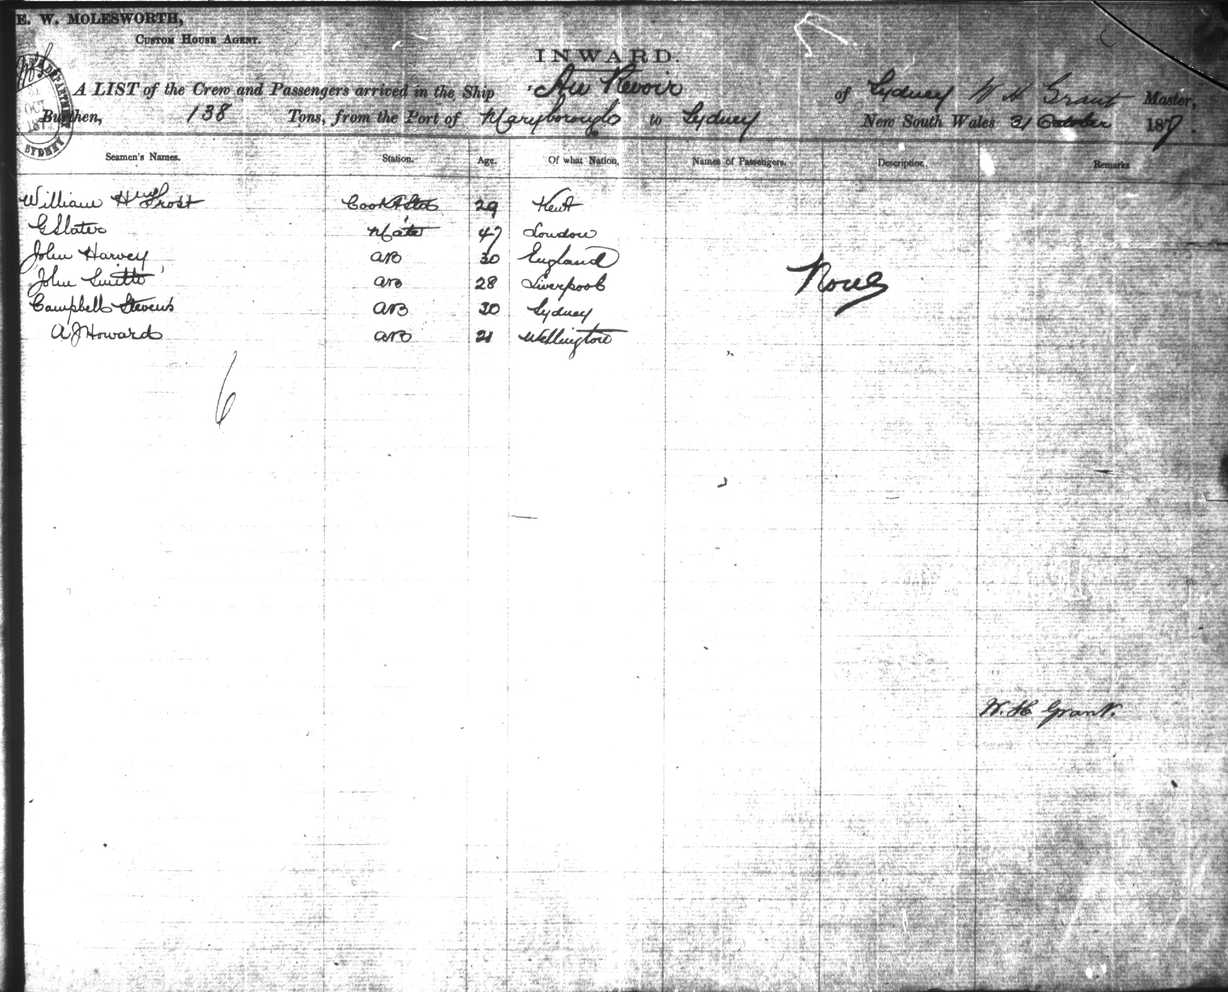 E. W. MOLESWORTH,
CUSTOM HOUSE AGENT.
INWARD.
A LIST of the Crew and Passengers arrived in the Ship Au Revoir of Sydney W H Grant Master,
Burthen, 138 Tons, from the Port of Maryborough to Sydney New South Wales 31 October 187
Seamen's Names. Station. Age. Of what Nation, Names of Passengers. Description. Remarks
William Hugh Frost Cook & Std 29 Kent
G Slater Mate 47 London
John Harvey AB 30 England
John Smith AB 28 Liverpool None
Campbell Stevens AB 30 Sydney
A J Howard AB 21 Wellington
6
W. H Grant.
SYDNEY